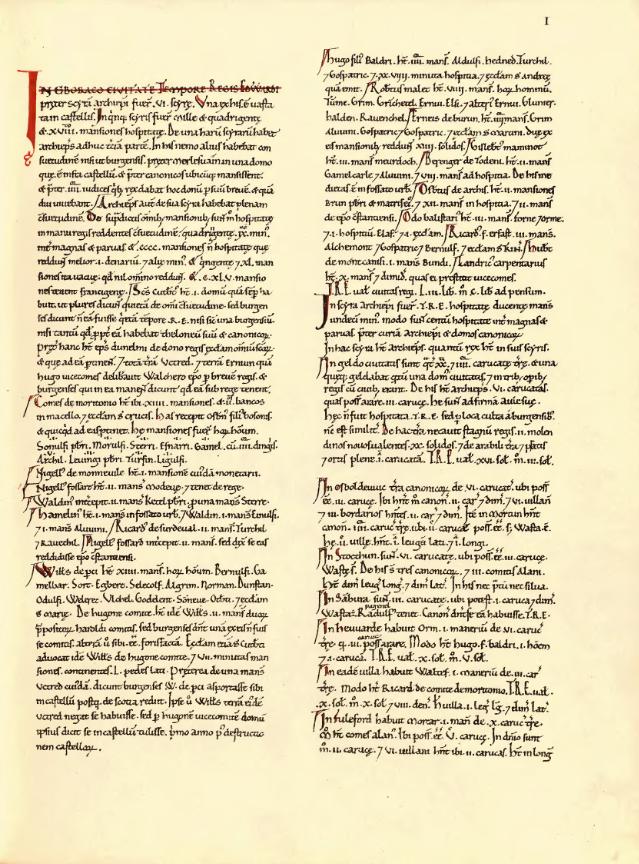 I
IN EBORACO CIVITATE Tempore Regis Eduuardi
preter scyrā archiepi fuer̄. VI. scyre. Una ex his ē uasta
ta in castellis. In qnq; scyris fuer̄ mille & quadringente
& XVIII. mansiones hospitate. De una harū scyrarū habet
archieps adhuc terciā partē. In his nemo alius habebat con
suetudinē nisi ut burgensis. preter Merlesuain in una domo
que ē infra castellū. & pter canonicos ubicunq; mansissent.
& pter IIII. iudices qb; rex dabat hoc donū p suū breuē. & qđiu
diu uiuebant. Archieps aut de sua scyra habebat plenam
c̄suetudinē. De supdictis omib; mansionib; sun̄ m̄ hospitate
in manu regis reddentes c̄suetudinē; quadringente. IX. min̄;
int̄ magnas & paruas. & CCCC. mansiones n̄ hospitate que
reddun̄ melior. I. denariū. 7 aliæ min̄; & quingente 7 XL man
siones ita uacue. qđ nil omino reddun̄. & CXLV. mansio
nes tenent francigene. Scs Cutbt̄ ht̄. I. domū quā sep ha
buit. ut plures dicun̄ quietā de omi c̄suetudine. sed burgen
ses dicun̄t n̄ eā fuisse quietā tempore R.E. nisi sic̄ una burgensiū.
nisi tantū qđ ppt̄ eā habebat theloneū suū & canonicoꝝ.
Pret̄ hanc ht̄ eps dunelmi de dono regis æcclam omiū scōꝝ.
& que ad eā ptinen̄. 7 totā t̄rā Uctred. 7 t̄rā Ernuin quā
Hugo uicecomes deliberauit Walchero epo p breuē regis. &
burgenses qui in ea manen̄t dicunt qđ eā sub rege tenent.
Comes de moritonio ht̄ ibi. XIIII. mansiones. & II. bancos
in macello. 7 æcclam s crucis. Has recepit Osbn̄ filī bosonis.
& quicqđ ad eas ptinet. He mansiones fuer̄ hoꝝ hoūm.
Sonulfi pbri. Morulfi. Sterri. Esnarri. Gamel. cū IIII. drinḡs.
Archil. Leuuing pbri. Turfin. Ligulfi.
Nigell' de moneuile ht̄. I. mansionē cuidā monetarii.
Nigell' fossart ht̄. II. mans̄ modeue. 7 tenet de rege.
Waldin intcepit. II. mans̄ Ketel pbri. p una mans̄ Sterre.
Hamelin ht̄. I. mans̄ in fossato urb; Waldin. I. mans̄ Einulfi.
7 I. mans̄ Aluuini. Ricard' de surdeual. II. mans̄. Turchil
7 Rauechil. Nigell' fossard intcepit. II. mans̄. sed dx̄ se eas
reddidisse epo cstantiensi.
Will's de pci ht̄ XIIII. mans̄. hoꝝ hoūm. Bernulfi. Ga
melbar. Sort. Egbert. Selecolf. Algrim. Norman. Dunstan.
Odulfi. Weleret. Ulchel. Goddent. Soneue. Otbt̄. 7 æcclam
s marię. De hugone comite ht̄ idē Will's. II. mans̄ duoꝝ
ppositoꝝ haroldi comitis. sed burgenses dn̄t una ex eis n̄ fuis
se comitis. alterā ū sibi ēē forisfactā. Ecclam etiā S Cutbti
aduocat idē Will's de hugone comite. 7 VII. minutas man
siones. continentes. L. pedes lati. Preterea de una mans̄
Uctred cuidā. dicunt burgenses W. de pci asportasse sibi
in castellū postq̄ de scotia rediit. Ipse ū Will's terā eid'ē
Uctred negat se habuisse. sed p hugonē uicecomitē domū
ipsius dicit se in castellū tulisse. pmo anno p' destructio
nem castelloꝝ.
Hugo filī Baldri. ht̄. IIII. mans̄. Aldulfi. hedned. Turchil.
7 Gospatric. 7 XXVIIII. minuta hospitia. 7 æcclam s andreę
quā emit. Robtus malet ht̄. VIIII. mans̄. hoꝝ hominū.
Tume. Grim. Grinchetel. Ernui. Elsi. 7 alteri' Ernui. Glunier.
halden. Rauenchel. Erneis de burun. ht̄. IIII. mans̄. Grim.
Aluuini. Gospatric. 7 Gospatric. 7 æcclam s martini. Due ex eis
mansionib; reddun̄ XIIII. solidos. Gislebt̄ maminot
ht̄. III. mans̄ meurdoch. Berenger de todeni. ht̄. II. mans̄
Gamelcarle 7 Aluuini. 7 VIII. mans̄ ad hospitia. De his me
dietas ē in fossato urb; Osbn̄us de archis. ht̄. II. mansiones
Brun pbri. & matris ei'. 7 XII. mans̄ in hospitia. 7 II. mans̄
de epo cstantiensi. Odo balistari' ht̄. III. mans̄. Forne 7 Orme.
7 I. hospitiū. Elaf. 7 I. æcclam. Ricard' f erfast. III. mans̄.
Alchemont 7 Gospatric 7 Bernulf. 7 æcclam s trinī. Hubt̄
de montcanisi. I. mans̄ Bundi. Landric carpentarius
ht̄. X. mans̄ 7 dimid. quas ei pstitit uicecomes.
T.R.E. ual' ciuitas regi. L. III. lib. m̄. C. lib ad pensum.
In scyra archiepi fuer̄. T.R.E. hospitate ducente mans̄
undeci min̄. modo sun̄ centū hospitate int̄ magnas &
paruas. pter curiā archiepi & domos canonicoꝝ.
In hac scyra ht̄ archieps. quantū rex ht̄ in suis scyris.
In geldo ciuitatis sunt quat̄ XX. 7 IIII. carucatę t̄re. & una
queq; geldabat qntū una dom' ciuitatis. 7 in trib; opib;
regis cū ciuib; erant. De his ht̄ archieps. VI. carucatas.
quas poss' arare. III. caruce. He sun̄ ad firmā aulę suę.
Hec n̄ fuit hospitata T.R.E. sed p loca culta a burgensib;
nc̄ est similit̄. De hac t̄ra necauit stagnū regis. II. molen
dinos nouos ualentes. XX. solidos. 7 de arabili t̄ra 7 ptis
7 ortis plene. I. carucatā. T.R.E. ual' XVI. sol. m̄. III. sol.
In Osboldeuuic t̄ra canonicoꝝ. de VI. carucat̄. ubi poss'
ēē. III. caruce. Ibi hn̄t m̄ canon. II. car̄ 7 dim̄. 7 VI. uillan̄
7 III. bordarios hntes. II. car̄ 7 dim̄. Ite in Mortun hn̄t
canon. IIII. caruc̄ t̄re. ubi. II. caruce poss' ēē. s; Wasta ē.
he. II. uille. hn̄t. I. leugā lat̄. 7 I. long'.
In Stochtun. sun̄. VI. carucatę. ubi poss' ēē. III. caruce.
Waste s̄. De his s̄ tres canonicoꝝ. 7 III. comitis Alani.
hn̄t dim̄ leug̃ long'. 7 dim̄ lat̄. In his nec ptū nec silua.
In Sābura sun̄. III. carucatę. ubi potest. I. caruca 7 dim̄.
Wasta ē. Radulf' pagenel tenet. Canon' dn̄t se eā habuisse T.R.E.
In Heuuarde habuit Orm. I. maneriū de VI. caruc̄
t̄re. q̄. III. caruce poss' arare. Modo ht̄ Hugo f baldri. I. hoem
7 I. carucā. T.R.E. ual'. X. sol. m̄. V. sol.
In eadē uilla habuit Waltef. I. maneriū de. III. car̄
t̄re. Modo ht̄ Ricard de comite de moritonio. T.R.E. ual'.
X. sol. m̄. X. sol' 7 VIII. den̄. H' uilla. I. leug̃ lg̃ 7 dim̄ lat̄.
In Fuleford habuit Morcar. I. man̄ de. X. caruc̄ t̄re.
m̄ ht̄ comes alan'. Ibi poss' ēē. V. caruce. In dn̄io sunt
m̄. II. caruce. 7 VI. uillani hn̄t ibi. II. carucas. ht̄ in long'